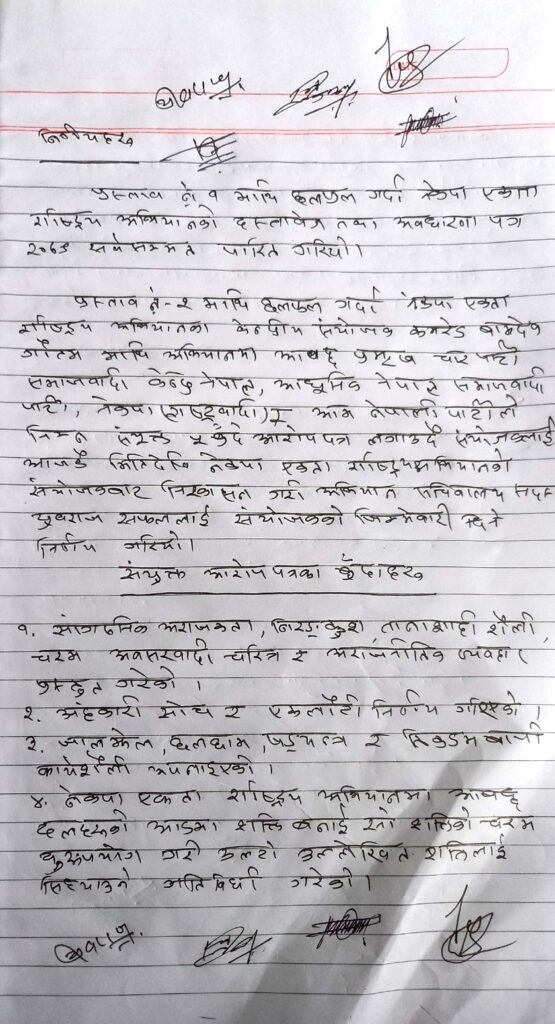 निर्णयहरु
प्रस्ताव नं १ माथि छलफल गर्दा नेकपा एकता
राष्ट्रिय अभियानको दस्तावेज तथा अवधारणा पत्र
२०७९ सर्वसम्मत पारित गरियो।
प्रस्ताव नं- २ माथि छलफल गर्दा नेकपा एकता
राष्ट्रिय अभियानका केन्द्रीय संयोजक कमरेड बामदेव
गौतम माथि अभियानमा आवद्ध प्रमुख चार पार्टी
समाजवादी केन्द्र नेपाल, आधुनिक नेपाल समाजवादी
पार्टी, नेकपा (राष्ट्रवादी) र आम नेपाली पार्टीले
निम्न संयुक्त बुँदे आरोपपत्र लगाउदै संयोजकलाई
आजकै मितिदेखि नेकपा एकता राष्ट्रिय अभियानको
संयोजकबाट निस्कासन गरी अभियान सचिवालय सदस्य
युवराज सफललाई संयोजकको जिम्मेवारी दिने
निर्णय गरियो।
संयुक्त आरोपपत्रका बुँदाहरु
१. सांगठनिक अराजकता, निरङ्कुश तानाशाही शैली,
चरम अवसरवादी चरित्र र अराजनीतिक व्यवहार
प्रस्तुत गरेको।
२. अंहकारी सोच र एकलौटी निर्णय गरिएको।
३. जालझेल, छलछाम, षड्यन्त्र र तिकडमबाजी
कार्यशैली अपनाइएको।
४. नेकपा एकता राष्ट्रिय अभियानमा आवद्ध
दलहरुको आडमा शक्ति बनाई सो शक्तिको चरम
दुरुपयोग गरी उल्टो उल्लेखित शक्तिलाई
सिध्याउने गतिविधी गरेको।